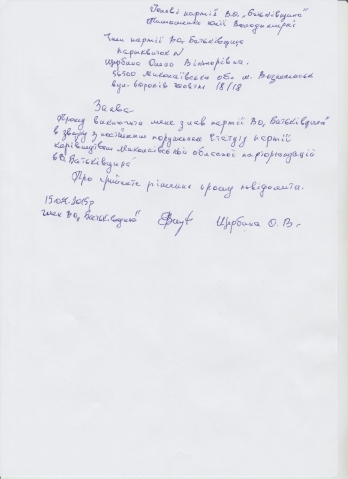 Голові партії В.О. „Батьківщина"
Тимошенко Юлії Володимирівні
Член партії ВО „Батьківщина
партквиток N
Щербина Олега Вікторівна.
56500 Миколаївська обл м. Вознесенськ
вул. 18/18
Заява
Прошу виключити мене з партії ВО „Батьківщина"
в звязку з постійним порушенням Статуту партії
керівництвом Миколаївської обласної парторганізацій
ВО „Батьківщина"
Про прийняте рішення прошу повідомити.
15.04.2015р
член ВО „Батьківщина"
Щербина О. В.